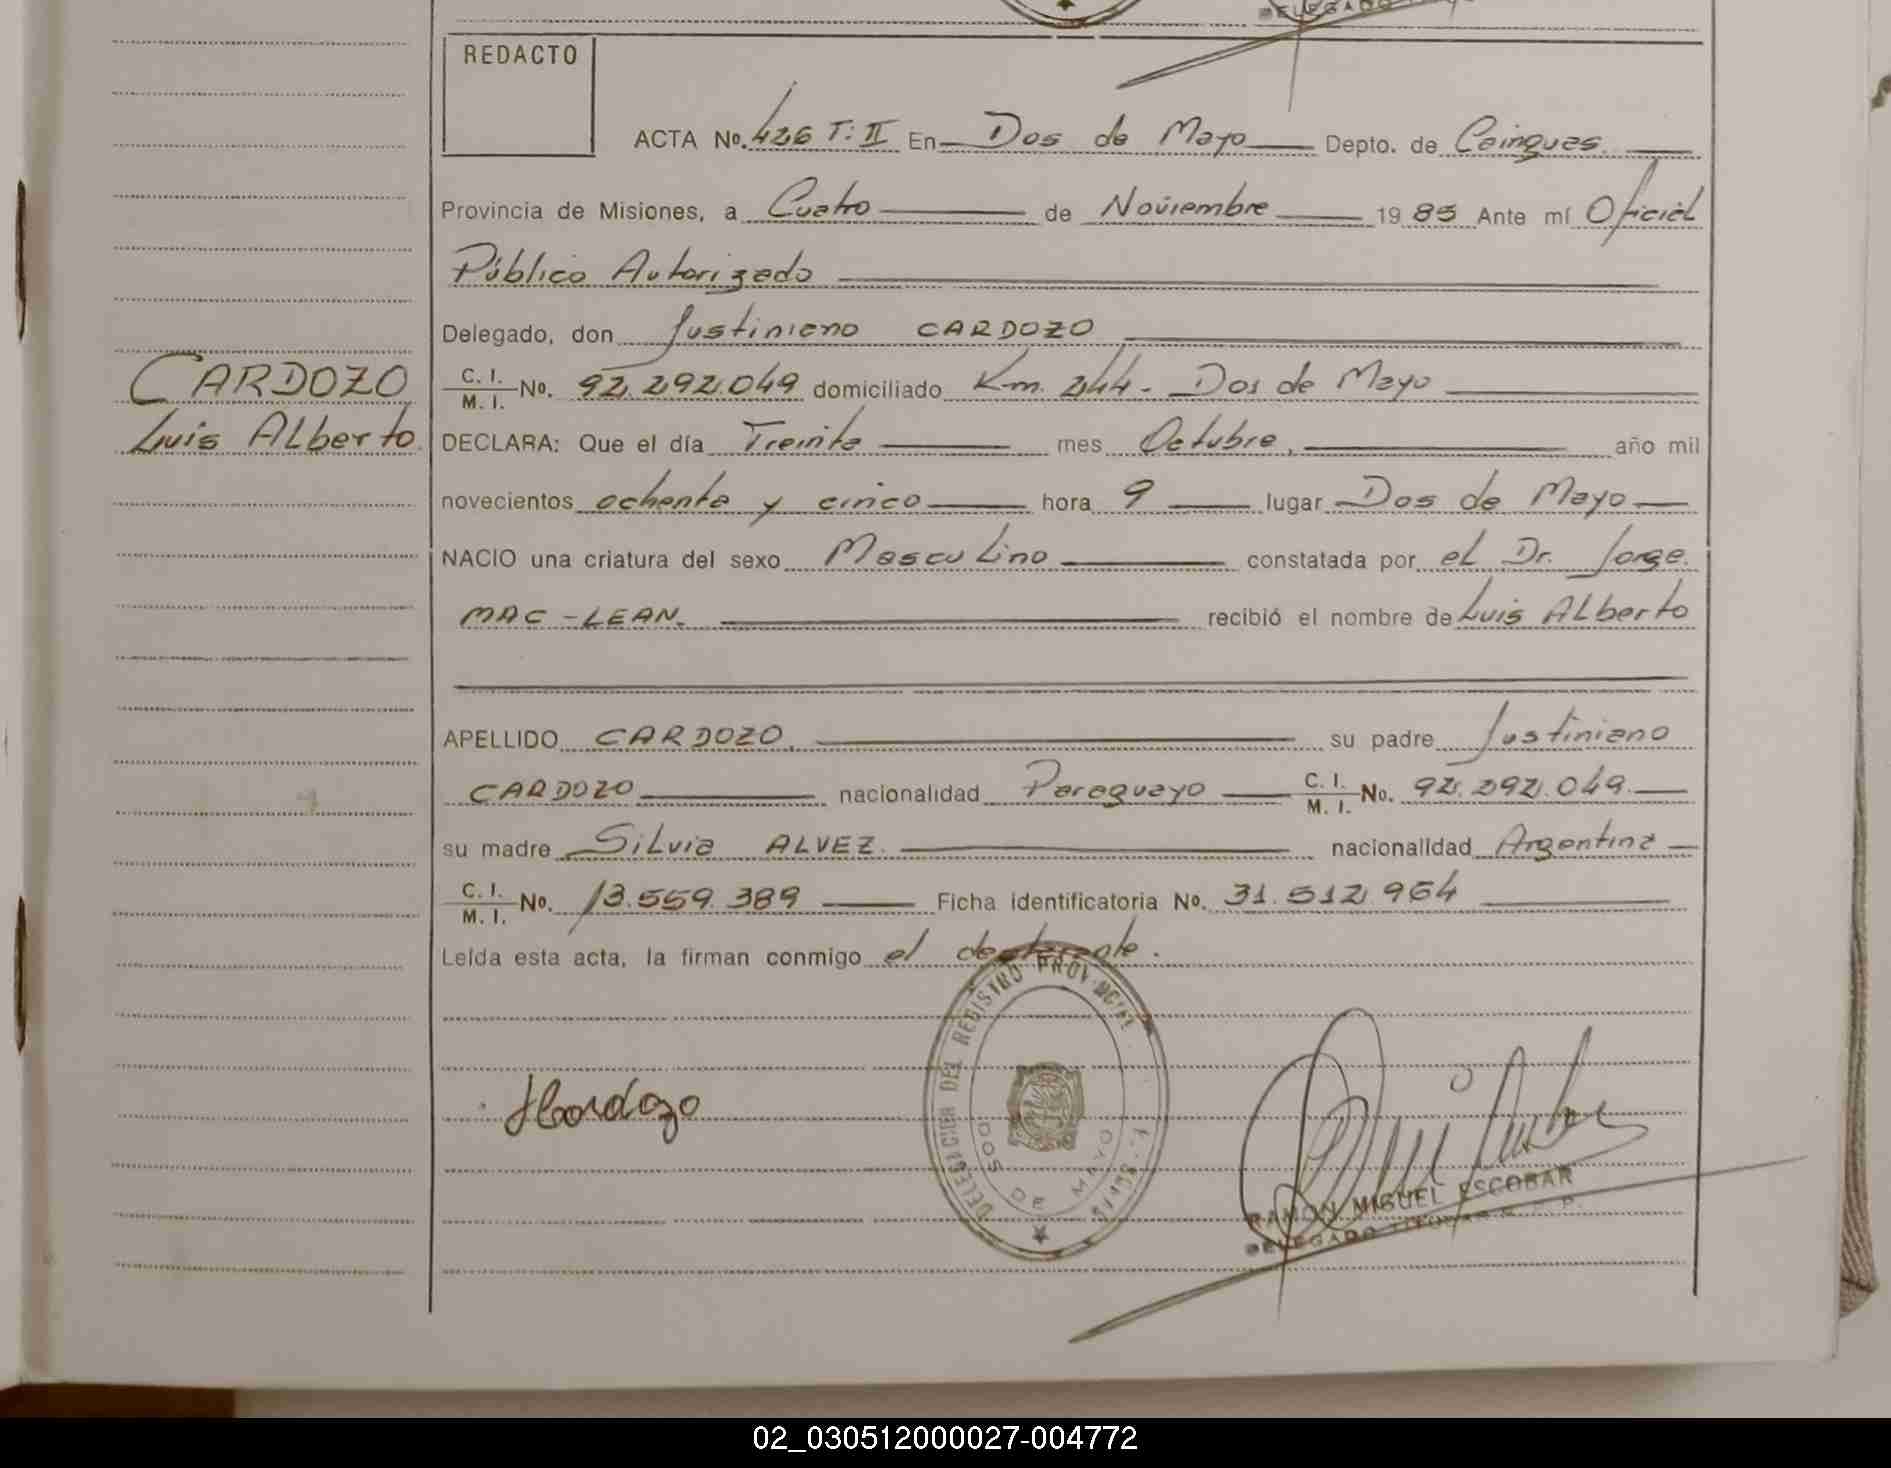 DELEGADO
REDACTO
ACTA No. 426 T: II En Dos de Mayo Depto. de Cainguas.
Provincia de Misiones, a Cuatro de Noviembre 1985 Ante mí Oficial
Público Autorizado
Delegado, don Justiniano CARDOZO
C. I. / M. I. No. 92.292.049 domiciliado Km. 244 - Dos de Mayo
CARDOZO
Luis ALberto.
DECLARA: Que el día Treinta mes Octubre, año mil
novecientos ochenta y cinco hora 9 lugar Dos de Mayo
NACIO una criatura del sexo Masculino constatada por el Dr. Jorge.
MAC-LEAN. recibió el nombre de Luis ALberto
APELLIDO CARDOZO. su padre Justiniano
CARDOZO nacionalidad Paraguayo C. I. / M. I. No. 92.292.049.
su madre Silvia ALVEZ. nacionalidad Argentina
C. I. / M. I. No. 13.559.389 Ficha identificatoria No. 31.512.964
Leída esta acta, la firman conmigo el declarante.
DELEGACION DEL REGISTRO PROVINCIAL
DOS DE MAYO
Cardozo
RAMON MIGUEL ESCOBAR
DELEGADO TITULAR
02_030512000027-004772